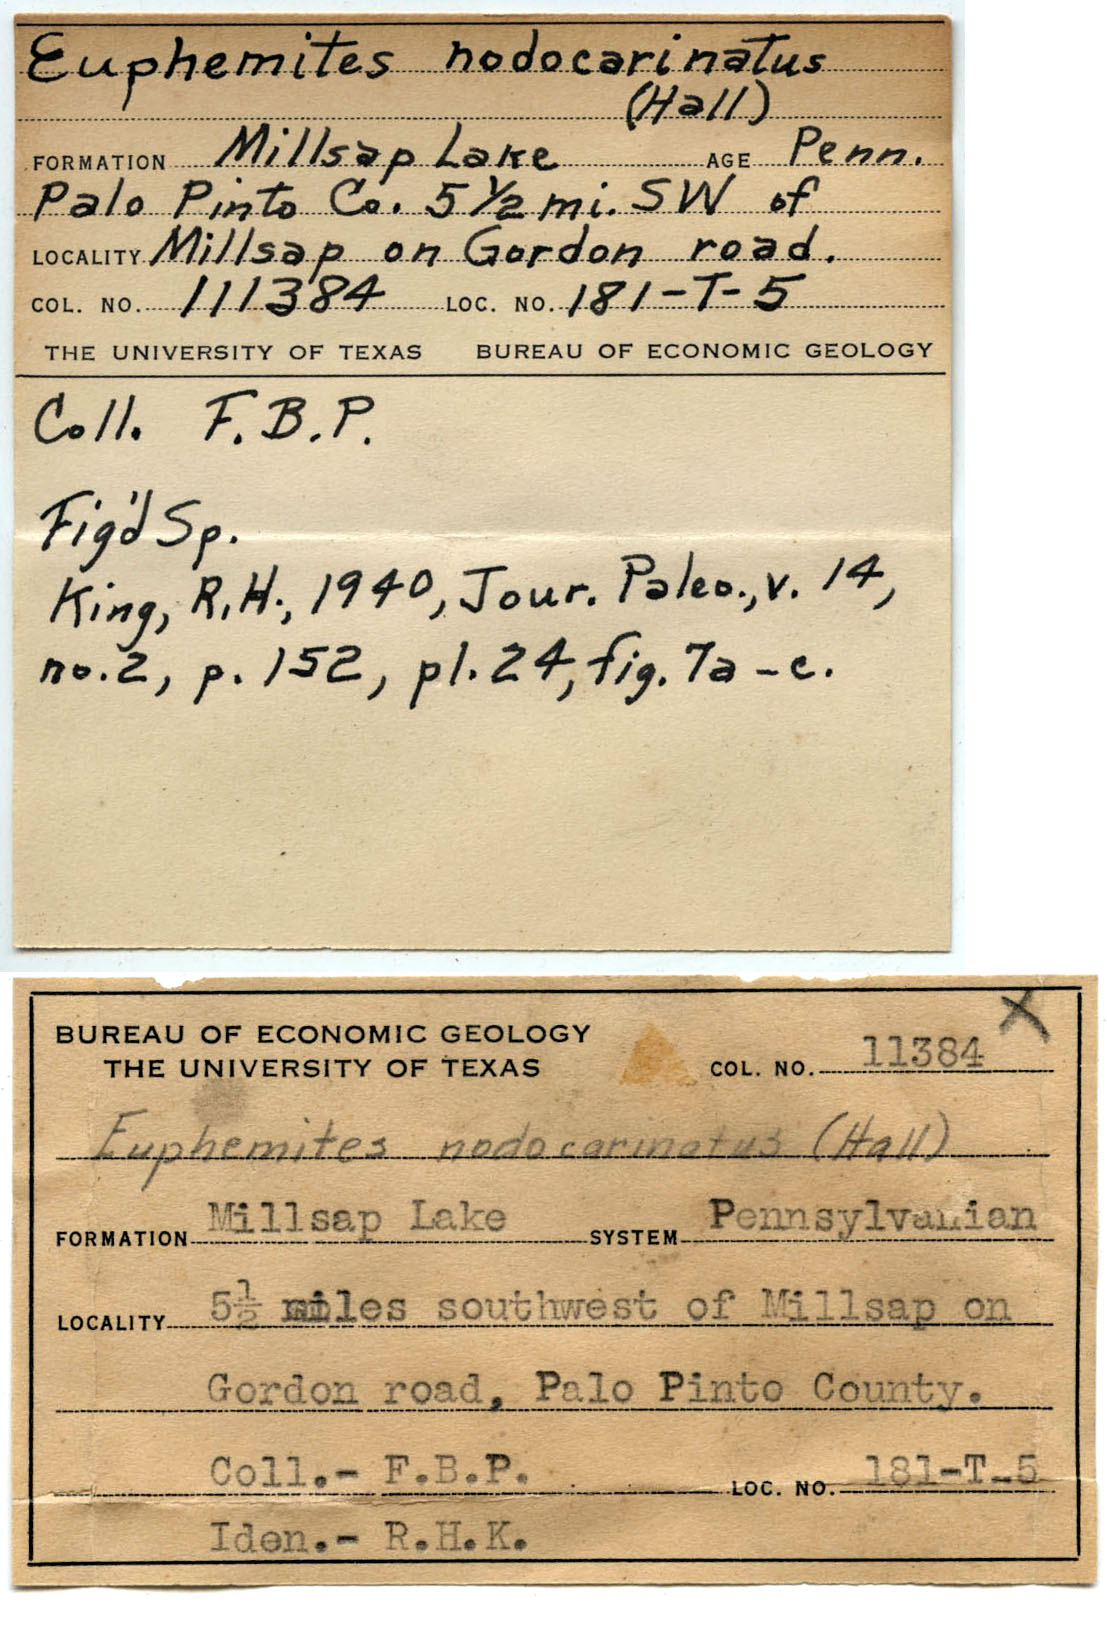 Euphemites nodocarinatus
(Hall)
FORMATION Millsap Lake AGE Penn.
Palo Pinto Co. 5 1/2 mi. SW of
LOCALITY Millsap on Gordon road.
COL. NO. 111384 LOC. NO. 181-T-5
THE UNIVERSITY OF TEXAS BUREAU OF ECONOMIC GEOLOGY
Coll. F.B.P.
Fig'd Sp.
King, R.H., 1940, Jour. Paleo., v. 14,
no. 2, p. 152, pl. 24, fig. 7a-c.
BUREAU OF ECONOMIC GEOLOGY
THE UNIVERSITY OF TEXAS
X
COL. NO. 11384
Euphemites nodocarinatus (Hall)
FORMATION Millsap Lake SYSTEM Pennsylvanian
LOCALITY 5 1/2 miles southwest of Millsap on
Gordon road, Palo Pinto County.
Coll.- F.B.P. LOC. NO. 181-T-5
Iden.- R.H.K.